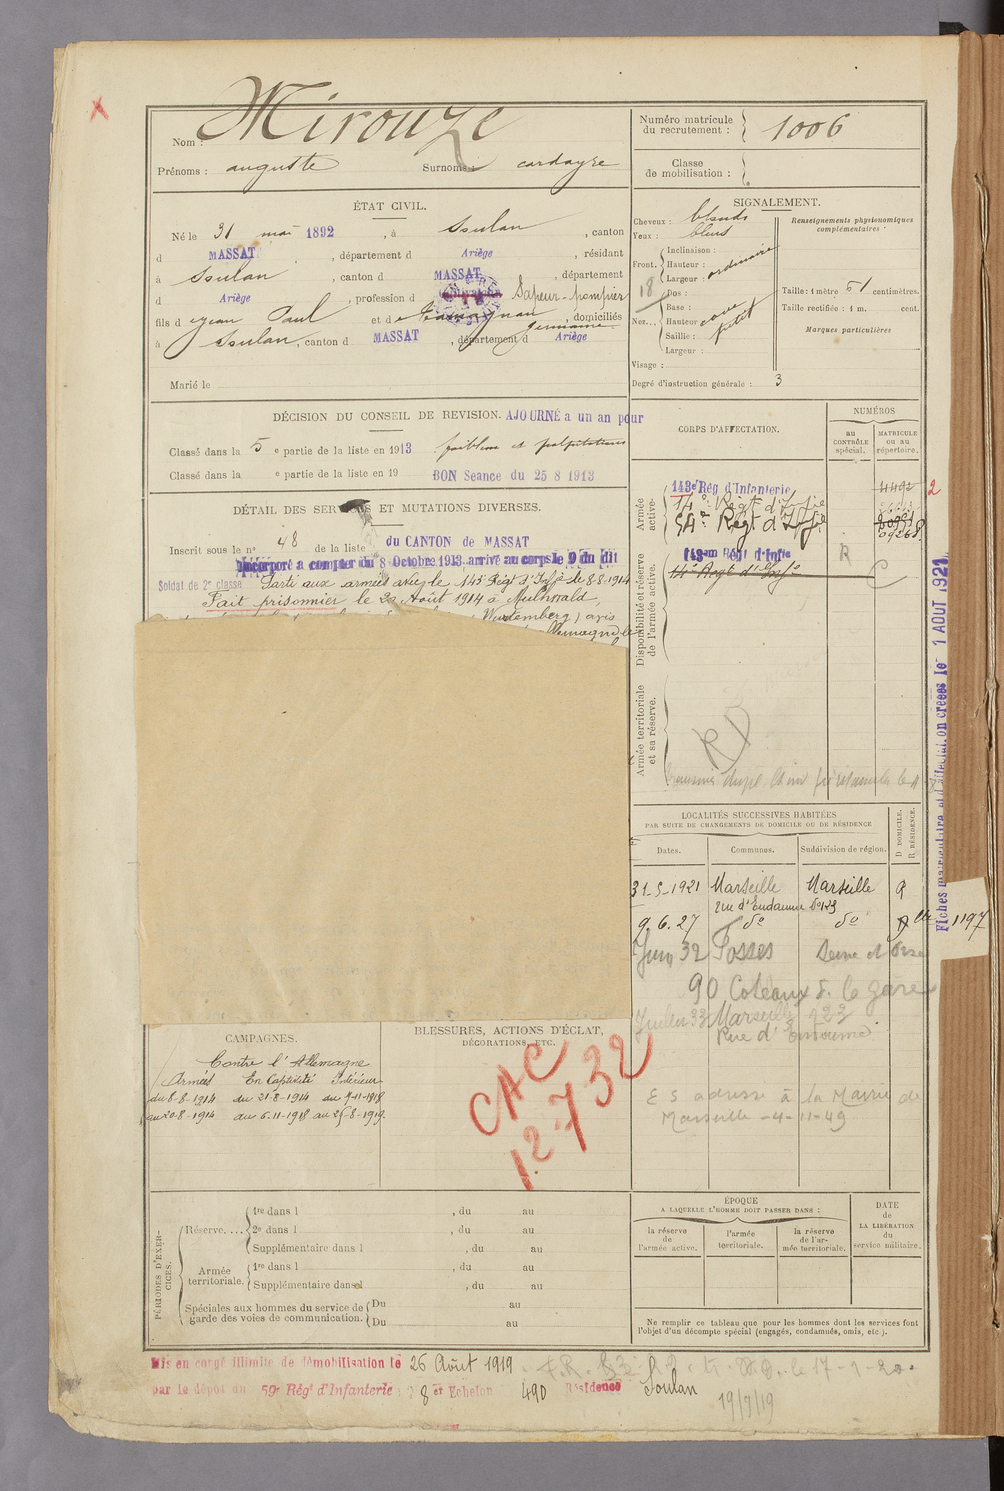 Nom : Mirouze
Prénoms : auguste Surnoms : cardayre
Numéro matricule du recrutement : 1006
Classe de mobilisation :
ÉTAT CIVIL.
Né le 31 mai 1892, à Soulan, canton
d MASSAT, département d Ariège, résidant
à Soulan, canton d MASSAT, département
d Ariège, profession d Sapeur-pompier
fils d e Jean Paul et d e germaine, domiciliés
à Soulan, canton d MASSAT, département d Ariège
Marié le
SIGNALEMENT.
Cheveux : blonds
Yeux : bleus
Front. Inclinaison :
Hauteur : ordinaire
Largeur :
18
Nez... Dos :
Base : cave
Hauteur petit
Saillie :
Largeur :
Visage :
Degré d'instruction générale : 3
Renseignements physionomiques complémentaires :
Taille : 1 mètre 61 centimètres.
Taille rectifiée : 1 m. cent.
Marques particulières
DÉCISION DU CONSEIL DE REVISION. AJOURNÉ a un an pour
Classé dans la 5 e partie de la liste en 1913 faiblesse et palpitations
Classé dans la e partie de la liste en 19 BON Seance du 25 8 1913
DÉTAIL DES SERVICES ET MUTATIONS DIVERSES.
Inscrit sous le n° 48 de la liste du CANTON de MASSAT
Incorporé a compter du 8 Octobre 1913 arrivé au corps le 9 du dit
Soldat de 2e classe Parti aux armées avec le 143 Régt d'Infie le 8-8-1914
Fait prisonnier le 20 Août 1914 à Mulhwald,
(Wurtemberg) avis
CORPS D'AFFECTATION.
NUMÉROS
au CONTRÔLE spécial.
MATRICULE ou au répertoire.
Armée active.
143e Rég d'Infanterie 4492 2
14e Régt d'Infie
54e Régt d'Infie 09268
Disponibilité et réserve de l'armée active.
143em Régt d'Infie R
14e Régt d'Infie
Armée territoriale et sa réserve.
Fiches matriculaire et d'affectation créées le 1 AOUT 1921
LOCALITÉS SUCCESSIVES HABITÉES
PAR SUITE DE CHANGEMENTS DE DOMICILE OU DE RÉSIDENCE
Dates. Communes. Subdivision de région. D DOMICILE. R RÉSIDENCE.
31-5-1921 Marseille Marseille R
rue d'Endaume 123
9.6.27 do do 1197
Juin 32 Fosses Seine et Oise
90 Coteaux de la gare
Juillet 33 Marseille 123
Rue d'Endoume
E S adresse à la Mairie de
Marseille -4-11-49
CAMPAGNES.
Contre l'Allemagne
Armées En Captivité Intérieur
du 8-8-1914 du 21-8-1914 du 7-11-1918
au 20-8-1914 au 6-11-1918 au 25-8-1919
BLESSURES, ACTIONS D'ÉCLAT,
DÉCORATIONS, ETC.
CAC
12-7 32
PÉRIODES D'EXERCICES.
Réserve.... 1re dans l , du au
2e dans l , du au
Supplémentaire dans l , du au
Armée territoriale. 1re dans l , du au
Supplémentaire dans l , du au
Spéciales aux hommes du service de garde des voies de communication. Du au
Du au
ÉPOQUE
A LAQUELLE L'HOMME DOIT PASSER DANS :
la réserve de l'armée active.
l'armée territoriale.
la réserve de l'armée territoriale.
DATE de LA LIBÉRATION du service militaire.
Ne remplir ce tableau que pour les hommes dont les services font
l'objet d'un décompte spécial (engagés, condamnés, omis, etc.).
Mis en congé illimité de démobilisation le 26 Août 1919
par le dépôt du 59e Rég' d'Infanterie : 8 er Echelon 490 Résidence Soulan
19/7/19